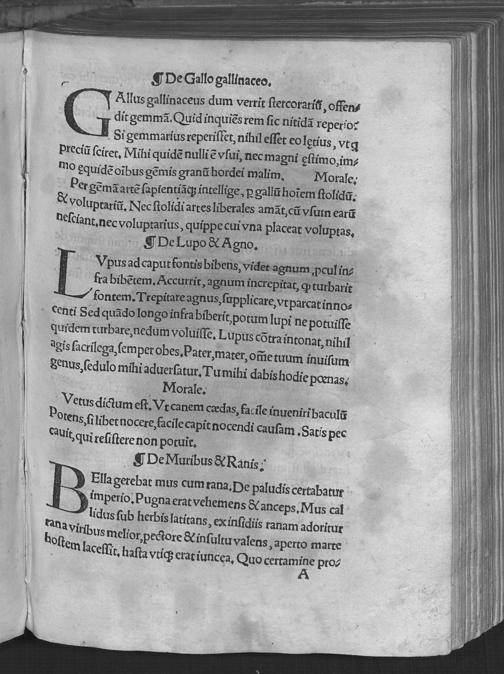 ¶ De Gallo gallinaceo.
GAllus gallinaceus dum verrit stercorariũ, offen⸗
dit gemmã. Quid inquiẽs rem sic nitidã reperio:
Si gemmarius reperisset, nihil esset eo lętius, vt q
preciũ sciret. Mihi quidẽ nulli ẽ vsui, nec magni ęstimo, im⸗
mo ęquidẽ oı̃bus gẽmis granũ hordei malim. Morale.
Per gẽmã artẽ sapientiãq; intellige, ꝑ gallũ hoı̃em stolidũ.
& voluptariũ. Nec stolidi artes liberales amãt, cũ vsum earũ
nesciant, nec voluptarius, quippe cui vna placeat voluptas.
¶ De Lupo & Agno.
LVpus ad caput fontis bibens, videt agnum, ꝓcul in⸗
fra bibẽtem. Accurrit, agnum increpitat, ꝙ turbarit
fontem. Trepitare agnus, supplicare, vt parcat inno⸗
centi Sed quãdo longo infra biberit, potum lupi ne potuisse
quidem turbare, nedum voluisse. Lupus cõtra intonat, nihil
agis sacrilega, semper obes. Pater, mater, om̃e tuum inuisum
genus, sedulo mihi aduersatur. Tu mihi dabis hodie pœnas.
Morale.
Vetus dictum est. Vt canem cædas, facile inueniri baculũ
Potens, si libet nocere, facile capit nocendi causam. Satis pec
cauit, qui resistere non potuit.
¶ De Muribus & Ranis.
BElla gerebat mus cum rana. De paludis certabatur
imperio. Pugna erat vehemens & anceps. Mus cal
lidus sub herbis latitans, ex insidiis ranam adoritur
rana viribus melior, pectore & insultu valens, aperto marte
hostem lacessit, hasta vtiq; erat iuncea. Quo certamine pro⸗
A